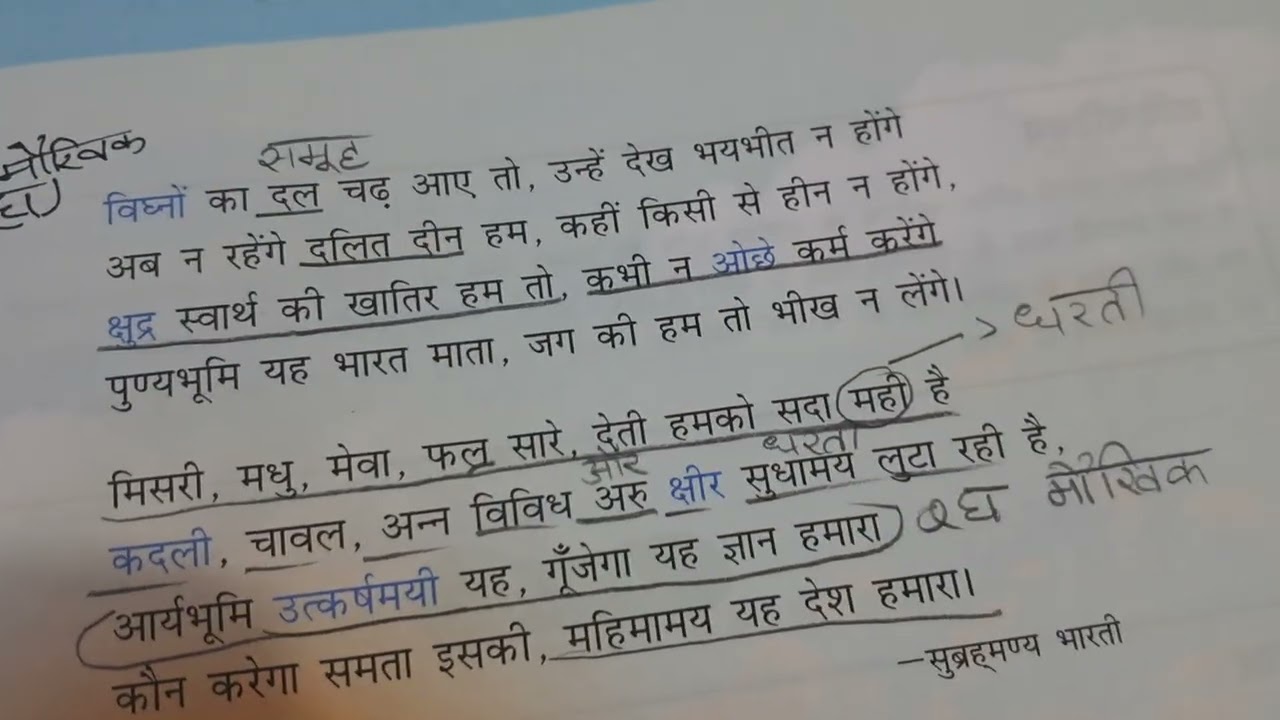 मौखिक
समूह
विघ्नों का दल चढ़ आए तो, उन्हें देख भयभीत न होंगे
अब न रहेंगे दलित दीन हम, कहीं किसी से हीन न होंगे,
क्षुद्र स्वार्थ की खातिर हम तो, कभी न ओछे कर्म करेंगे
पुण्यभूमि यह भारत माता, जग की हम तो भीख न लेंगे।
धरती
मिसरी, मधु, मेवा, फल सारे, देती हमको सदा मही है
और धरती
कदली, चावल, अन्न विविध अरु क्षीर सुधामय लुटा रही है,
मौखिक
आर्यभूमि उत्कर्षमयी यह, गूँजेगा यह ज्ञान हमारा
कौन करेगा समता इसकी, महिमामय यह देश हमारा।
–सुब्रह्मण्य भारती